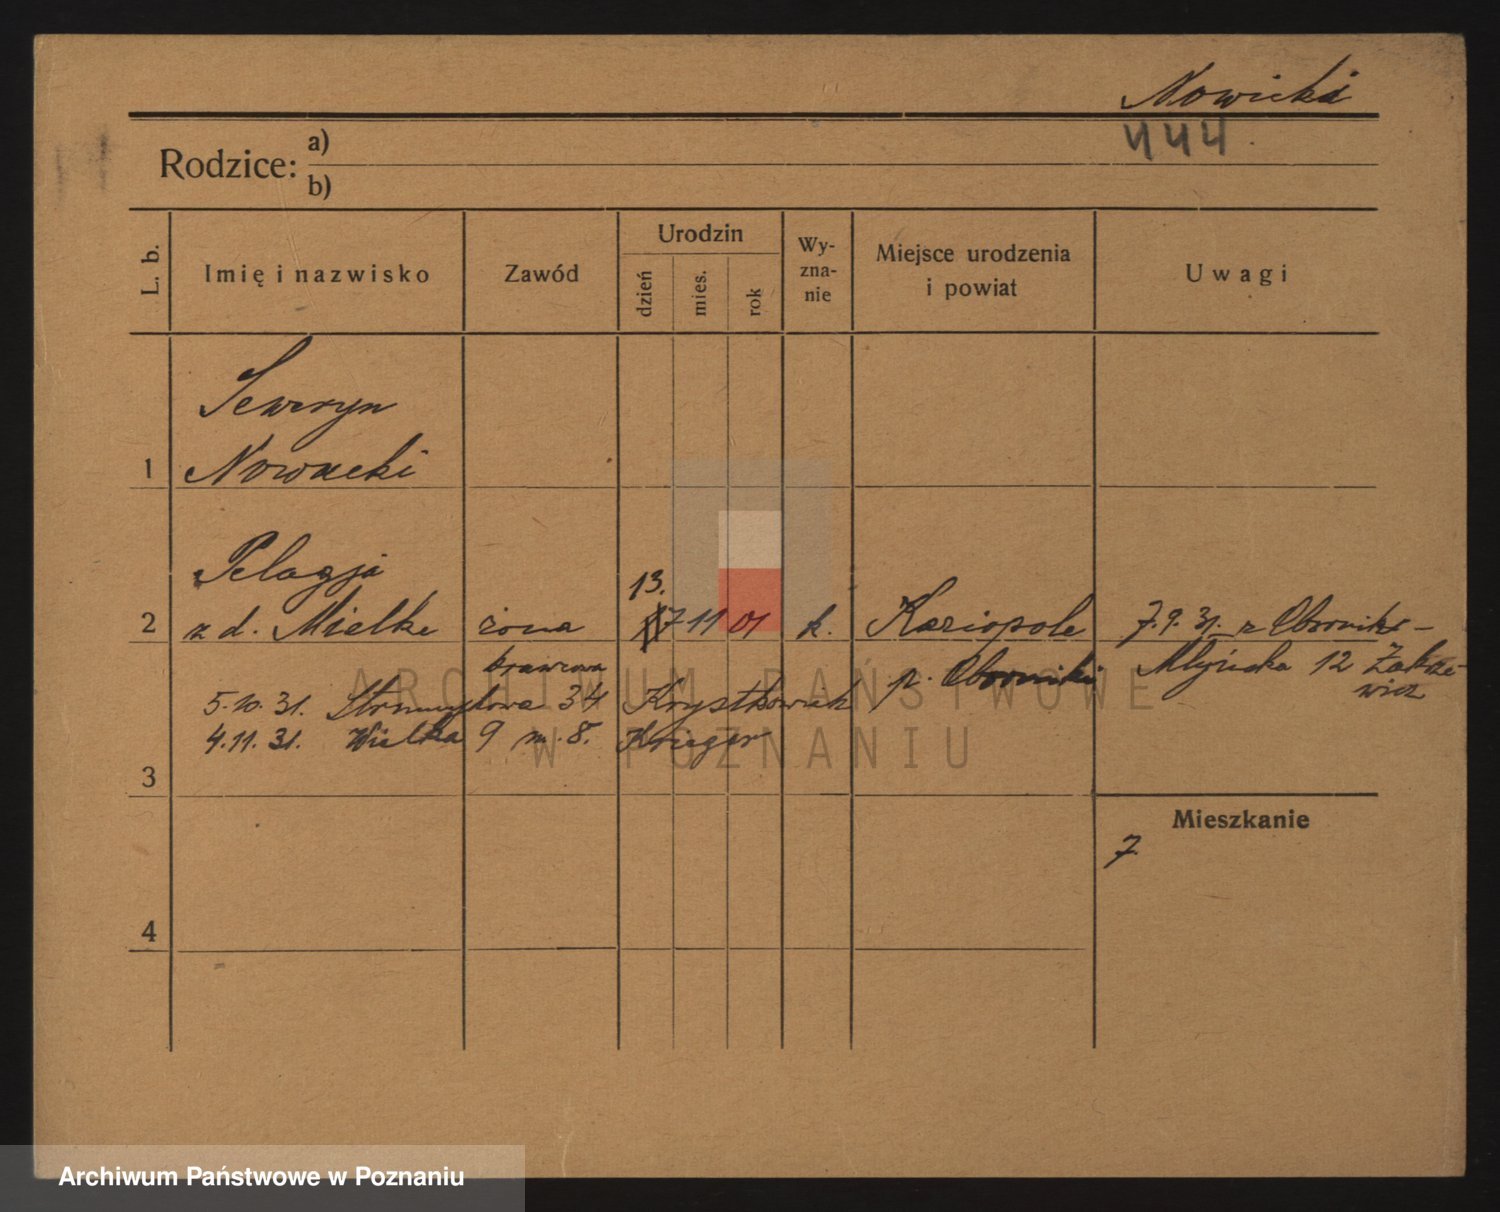 Nowicka
444
Rodzice: a)
b)
L. b. Imię i nazwisko Zawód Urodzin dzień mies. rok Wy-zna-nie Miejsce urodzenia i powiat Uwagi
Seweryn
1 Nowacki
Pelagja 13.
2 z d. Mielke żona 7 11 01 k. Kaziopole 7.9.31. z Obornik –
krawcowa p. Oborniki Młyńska 12 Zakrze-
wicz
5.10.31. Strumykowa 34 Krystkowiak
4.11.31. Wielka 9 m. 8. Krieger
3
Mieszkanie
7
4
ARCHIWUM PAŃSTWOWE
W POZNANIU
Archiwum Państwowe w Poznaniu